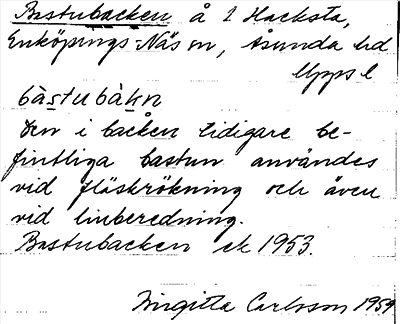 Bastubacken å 2 Hacksta,
Enköpings-Näs sn, Åsunda hd
Upps l
bàstubàkn
Den i backen tidigare be-
fintliga bastun användes
vid fläskrökning och även
vid linberedning.
Bastubacken ek 1953.
Birgitta Carlsson 1959